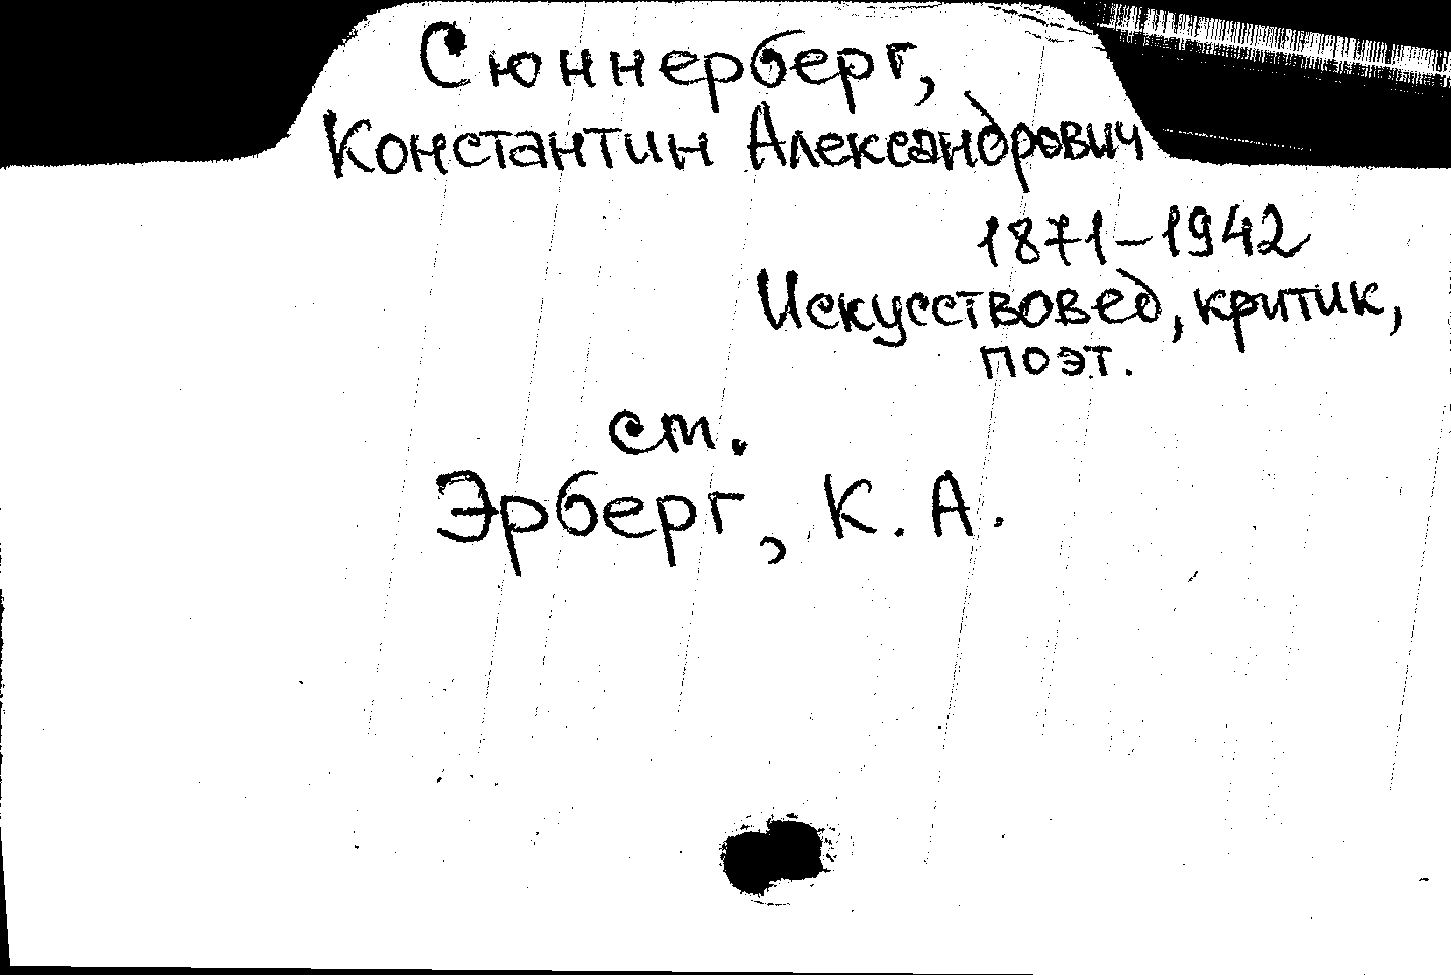 Сюннерберг,
Константин Александрович
1871–1942
Искусствовед, критик,
поэт.
ст.
Эрберг, К. А.